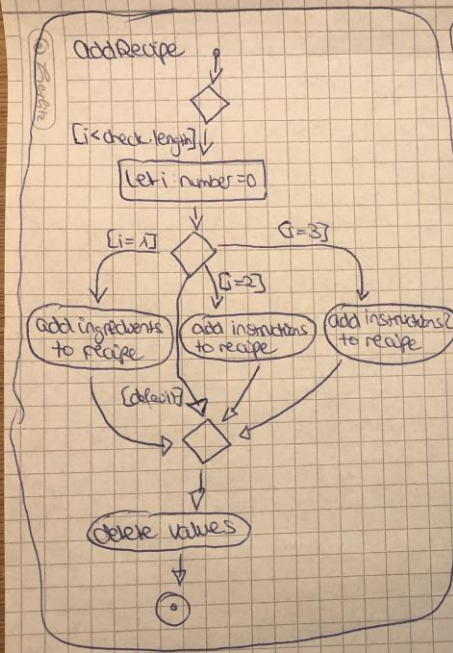 addRecipe
[i<check.length]
let i: number=0
[i=1]
[i=3]
[i=2]
add ingredients
to recipe
add instructions
to recipe
add instructions2
to recipe
[default]
delete values